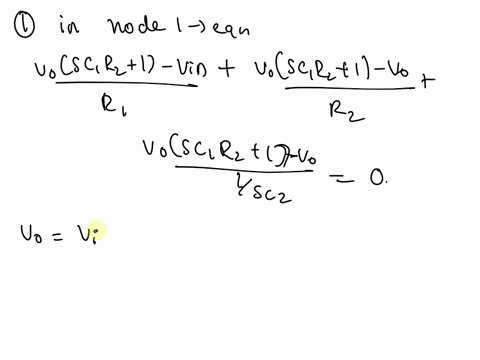 ① in node 1 → eqn
V0(SC1R2+1) - Vin / R1 + V0(SC1R2+1) - V0 / R2 +
V0(SC1R2+1) - V0 / 1/SC2 = 0.
V0 = Vi